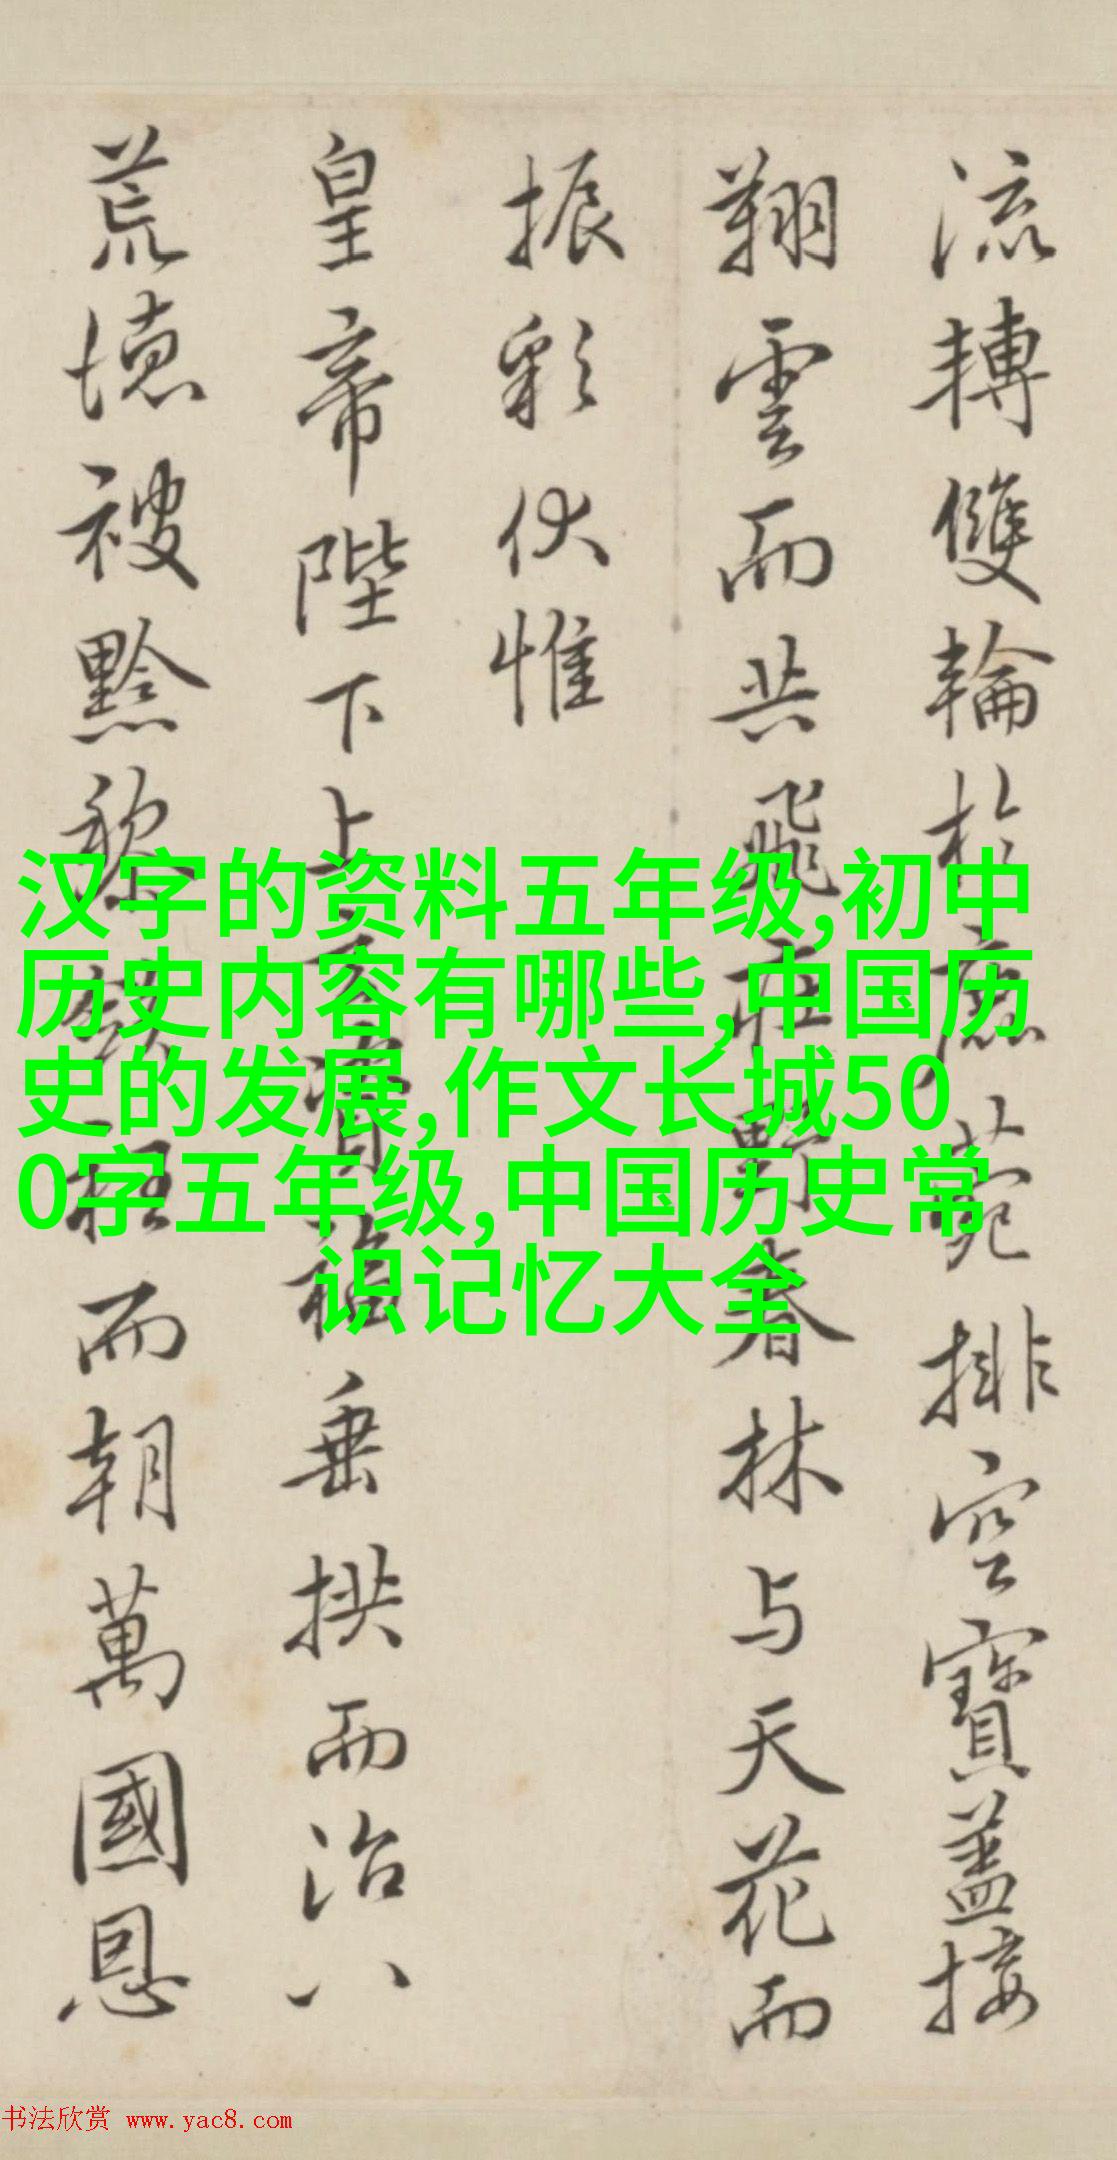 流轉雙輪於鹿菀排空寶蓋接
翔雲而共飛莊野春林与天花而
振彩伏惟
皇帝陛下上玄資福垂拱而治八
荒德被黔黎斂衽而朝萬國恩
汉字的资料五年级,初中
历史内容有哪些,中国历
史的发展,作文长城50
0字五年级,中国历史常
识记忆大全
书法欣赏 www.yac8.com